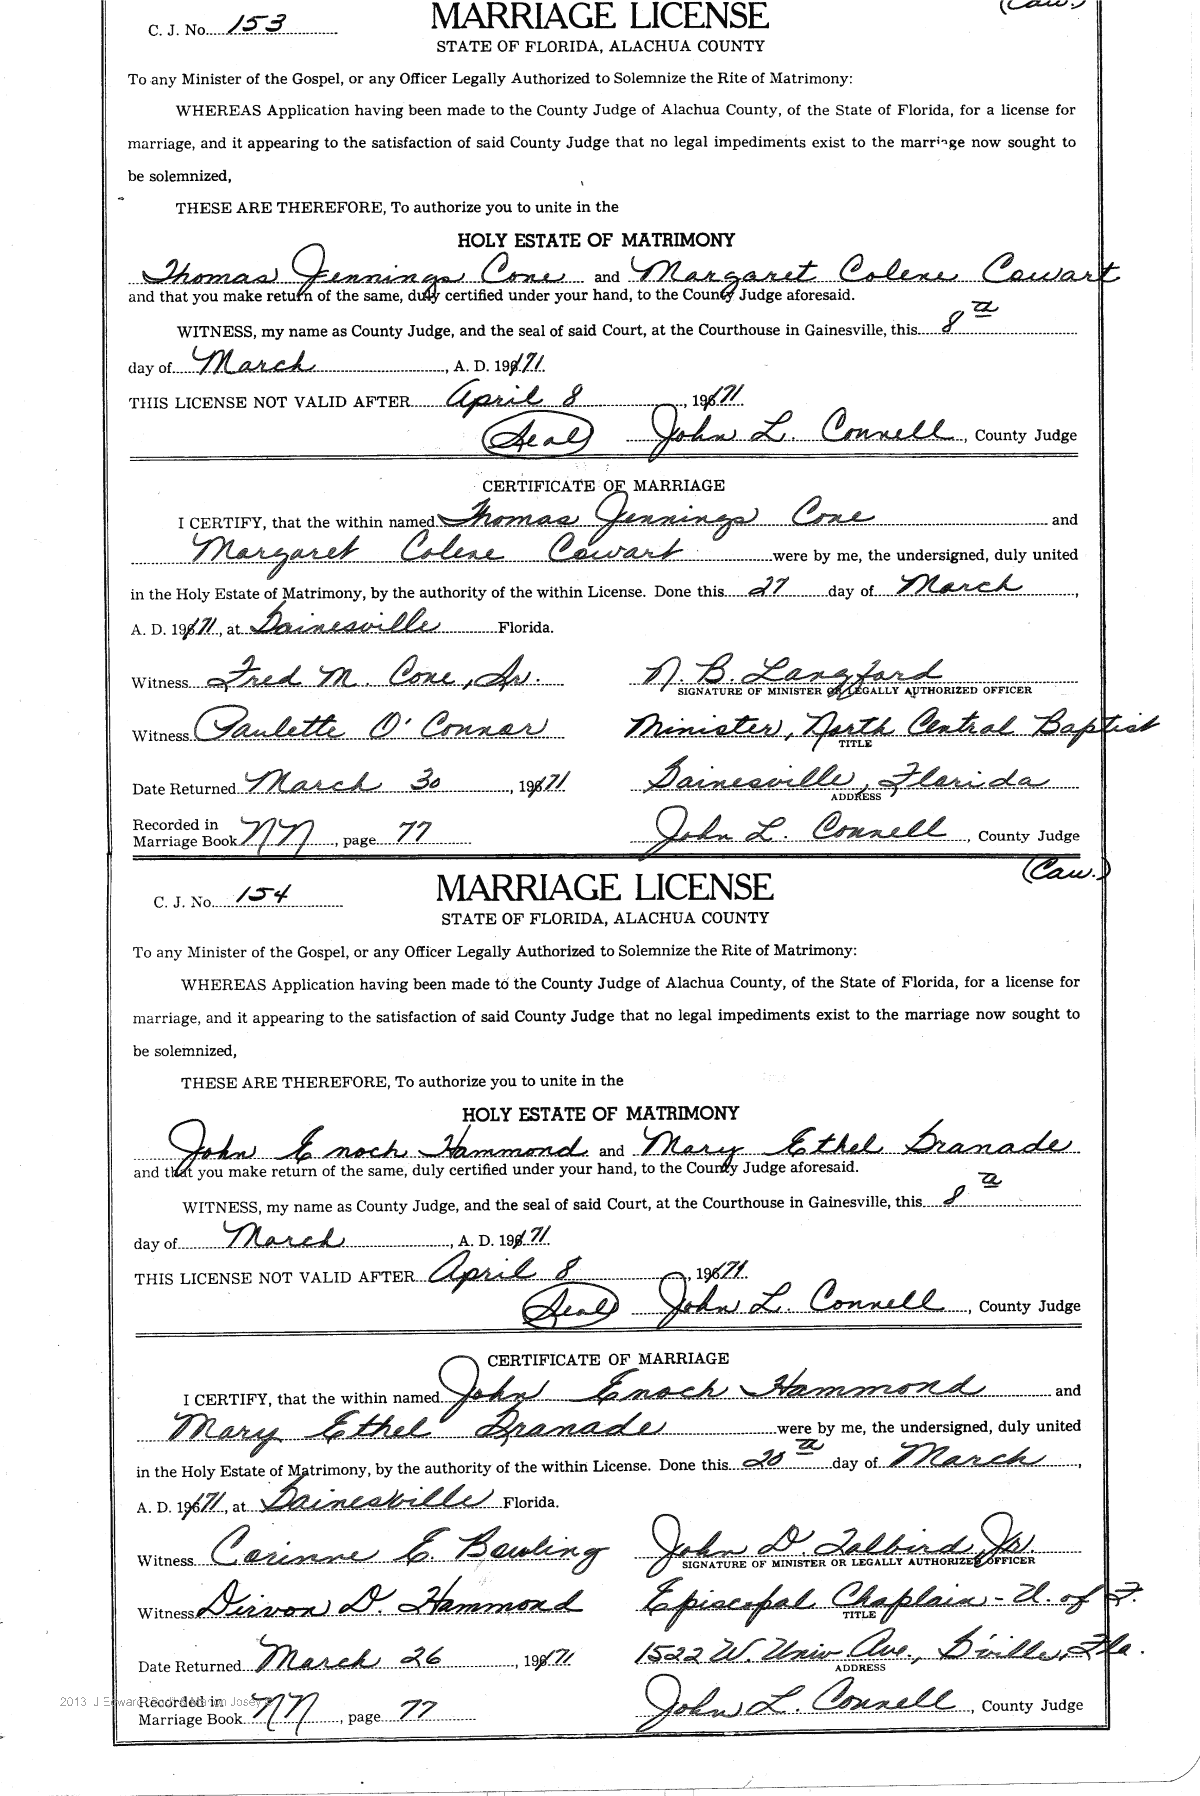 (Caw.)
C. J. No. 153 MARRIAGE LICENSE
STATE OF FLORIDA, ALACHUA COUNTY
To any Minister of the Gospel, or any Officer Legally Authorized to Solemnize the Rite of Matrimony:
WHEREAS Application having been made to the County Judge of Alachua County, of the State of Florida, for a license for
marriage, and it appearing to the satisfaction of said County Judge that no legal impediments exist to the marriage now sought to
be solemnized,
THESE ARE THEREFORE, To authorize you to unite in the
HOLY ESTATE OF MATRIMONY
Thomas Jennings Cone and Margaret Colene Cowart
and that you make return of the same, duly certified under your hand, to the County Judge aforesaid.
WITNESS, my name as County Judge, and the seal of said Court, at the Courthouse in Gainesville, this 8th
day of March, A. D. 1971.
THIS LICENSE NOT VALID AFTER April 8, 1971.
(Seal) John L. Connell, County Judge
CERTIFICATE OF MARRIAGE
I CERTIFY, that the within named Thomas Jennings Cone and
Margaret Colene Cowart were by me, the undersigned, duly united
in the Holy Estate of Matrimony, by the authority of the within License. Done this 27 day of March,
A. D. 1971, at Gainesville Florida.
Witness Fred M. Cone, Sr. N. B. Langford
SIGNATURE OF MINISTER OR LEGALLY AUTHORIZED OFFICER
Witness Paulette O'Connor Minister, North Central Baptist
TITLE
Date Returned March 30, 1971 Gainesville, Florida
ADDRESS
Recorded in
Marriage Book NN, page 77 John L. Connell, County Judge
(Caw.)
C. J. No. 154 MARRIAGE LICENSE
STATE OF FLORIDA, ALACHUA COUNTY
To any Minister of the Gospel, or any Officer Legally Authorized to Solemnize the Rite of Matrimony:
WHEREAS Application having been made to the County Judge of Alachua County, of the State of Florida, for a license for
marriage, and it appearing to the satisfaction of said County Judge that no legal impediments exist to the marriage now sought to
be solemnized,
THESE ARE THEREFORE, To authorize you to unite in the
HOLY ESTATE OF MATRIMONY
John Enoch Hammond and Mary Ethel Granade
and that you make return of the same, duly certified under your hand, to the County Judge aforesaid.
WITNESS, my name as County Judge, and the seal of said Court, at the Courthouse in Gainesville, this 8th
day of March, A. D. 1971.
THIS LICENSE NOT VALID AFTER April 8, 1971.
(Seal) John L. Connell, County Judge
CERTIFICATE OF MARRIAGE
I CERTIFY, that the within named John Enoch Hammond and
Mary Ethel Granade were by me, the undersigned, duly united
in the Holy Estate of Matrimony, by the authority of the within License. Done this 20th day of March,
A. D. 1971, at Gainesville Florida.
Witness Corinne E. Bowling John D. Talbird, Jr.
SIGNATURE OF MINISTER OR LEGALLY AUTHORIZED OFFICER
Witness Dirvon D. Hammond Episcopal Chaplain - U. of F.
TITLE
Date Returned March 26, 1971 1522 W. Univ Ave., G'ville, Fla.
ADDRESS
2013 J Edward
Recorded in
Marriage Book NN, page 77 John L. Connell, County Judge